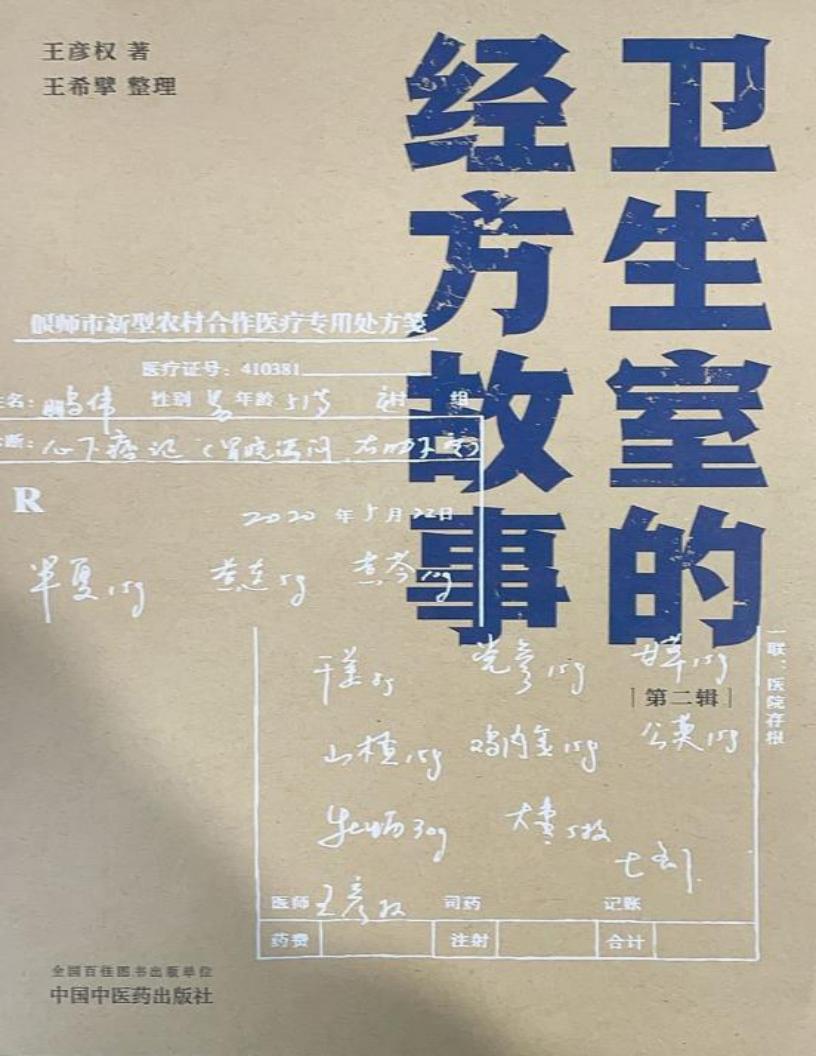 王彦权 著
王希擘 整理
卫生室的
经方故事
第二辑
偃师市新型农村合作医疗专用处方笺
医疗证号：410381
姓名： 鹏伟 性别 男 年龄 51岁 村 组
诊断： 心下痞
R
2020 年 5 月 22 日
半夏15g 黄连5g 黄芩10g
干姜8g 党参15g 甘草15g
山楂15g 鸡内金15g 公英15g
牡蛎30g 大枣5枚
七剂
医师 王彦权 司药 记账
药费 注射 合计
一联：医院存根
全国百佳图书出版单位
中国中医药出版社